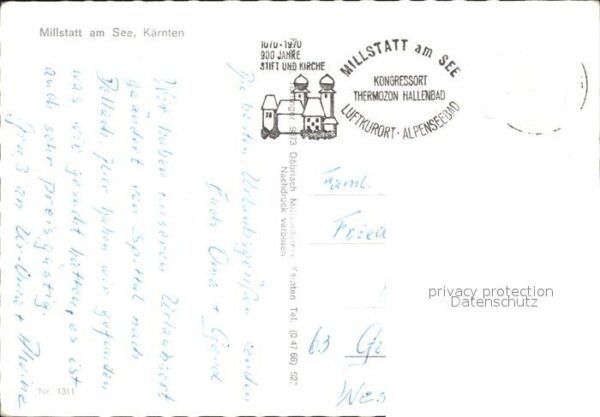 Millstatt am See, Kärnten
1070-1970
900 JAHRE
STIFT UND KIRCHE
MILLSTATT am SEE
KONGRESSORT
THERMOZON HALLENBAD
LUFTKURORT · ALPENSEEBAD
Die besten Urlaubsgrüße senden
Euch Oma + Gerd
Wir haben unseren Urlaubsort
geändert von Spittal nach
Döllach. Hier haben wir gefunden
was wir gesucht hatten, es ist
auch sehr preisgünstig.
an Ur-Oma +
9873 Döbriach
Kärnten Tel. (0 47 66) 52
Nachdruck verboten
Faml.
Frie
63 Gi
Wes
privacy protection
Datenschutz
Nr. 1311